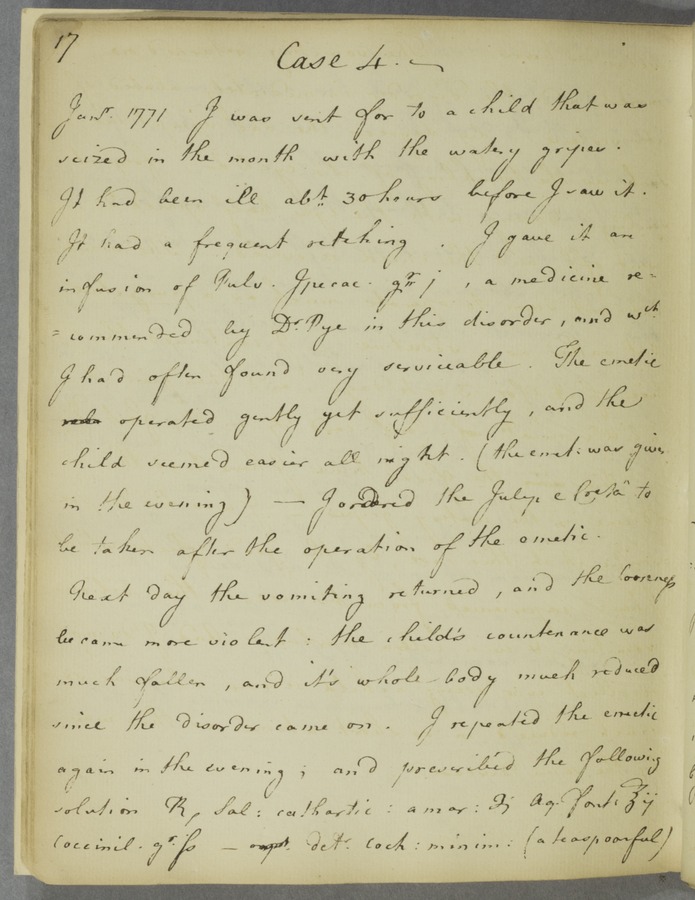 17
Case 4.
Janry. 1771 I was sent for to a child that was
seized in the month with the watery gripes.
It had been ill abt. 30 hours before I saw it.
It had a frequent retching. I gave it an
infusion of Pulv. Ipecac. gr. j, a medicine re=
=commended by Dr. Pye in this disorder, and wch.
I had often found very serviceable. The emetic
operated gently yet sufficiently, and the
child seemed easier all night. (the emet: was given
in the evening) — I ordered the Julep. e Cretâ to
be taken after the operation of the emetic.
Next day the vomiting returned, and the looseness
became more violent: the child's countenance was
much fallen, and it's whole body much reduced
since the disorder came on. I repeated the emetic
again in the evening; and prescribed the following
solution ℞ Sal: cathartic: amar: ʒj Aq. Font: ℥ij
Coccinil. gr. ſs — detr. coch: minim: (a teaspoonful)